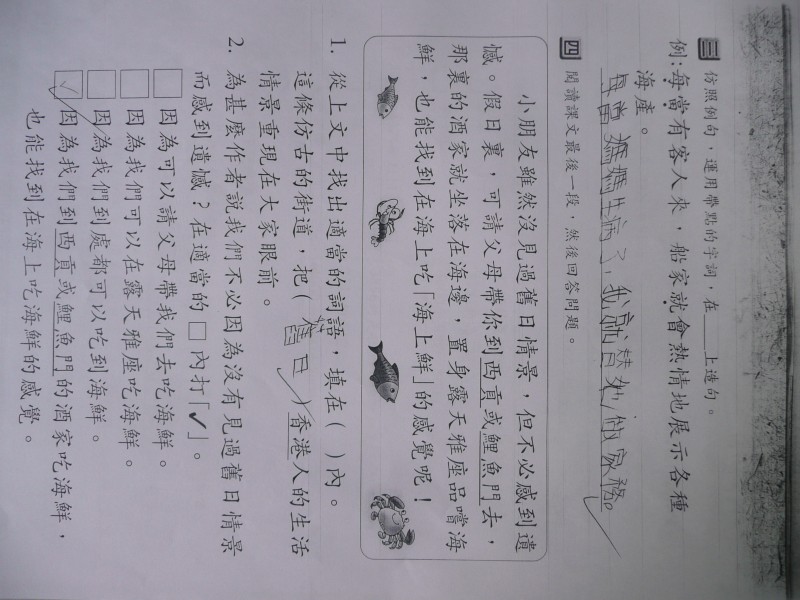 三 仿照例句，運用帶點的字詞，在＿＿上造句。
例：每當有客人來，船家就會熱情地展示各種
海產。
每當媽媽生病了，我就會替她做家務。
四 閱讀課文最後一段，然後回答問題。
小朋友雖然沒見過舊日情景，但不必感到遺
憾。假日裏，可請父母帶你到西貢或鯉魚門去，
那裏的酒家就坐落在海邊，置身露天雅座品嚐海
鮮，也能找到在海上吃「海上鮮」的感覺呢！
1. 從上文中找出適當的詞語，填在（ ）內。
這條仿古的街道，把（舊日）香港人的生活
情景重現在大家眼前。
2. 為甚麼作者説我們不必因為沒有見過舊日情景
而感到遺憾？在適當的□內打「✓」。
□ 因為可以請父母帶我們去吃海鮮。
□ 因為我們可以在露天雅座吃海鮮。
□ 因為我們到處都可以吃到海鮮。
☑ 因為我們到西貢或鯉魚門的酒家吃海鮮，
也能找到在海上吃海鮮的感覺。